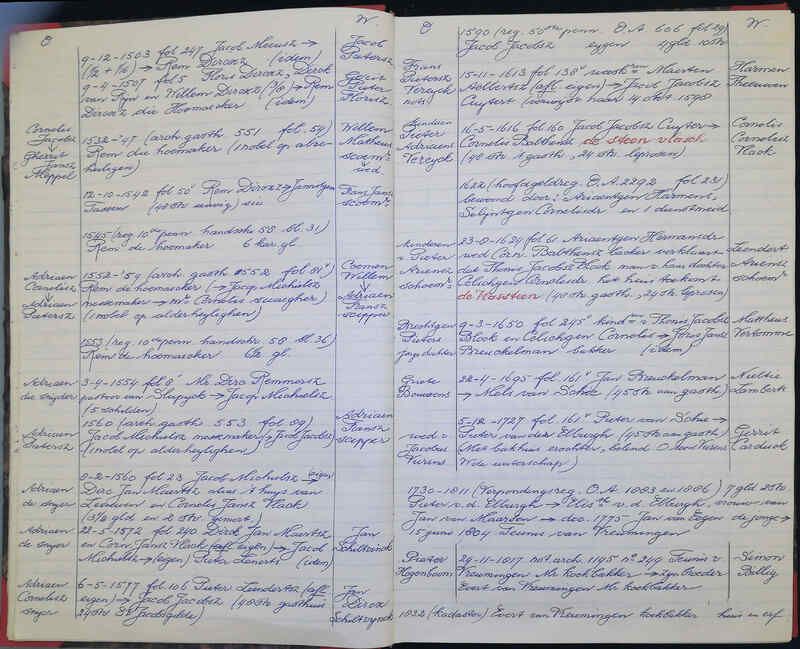 O W.
9-12-1503 fol 247 Jacob Meeusz →
(1/2 + 1/6) → Rem Dircxz (idem)
9-4-1507 fol 5 Floris Dircxz, Derck
van Rijn en Willem Dircxz (1/6) → Rem
Dircxz die Hoemaecker (idem)
Jacob
Pietersz
Gerrit
Pieter
Florisz
Cornelis
Jacobsz
Gherrit
Jansz
1532-'47 (arch. gasth. 551 fol. 54)
Rem die hoemaker (1 nobel op alre-
heiligen)
Willem
Matheus
scoem
wed
12-10-1542 fol 50 Rem Dircxz → Jannetgen
1545 (reg. 10de penn. handschr. 58 bl. 31)
Rem de hoemaker 6 kar. gl.
Adriaen
Cornelisz
Adriaen
Pietersz
1552-'59 (arch. gasth. 552 fol 81)
Rem de hoemaker (→ Jacop Michielsz
messemaker → Mr. Cornelis swaegher)
(1 nobel op alderheylighen)
Coomen
Willem
Adriaen
Fransz
scipper
1553 (reg. 10de penn. handschr. 58 bl. 36)
Rem de hoemaecker gl.
Adriaen
die snijder
3-4-1554 fol 8 Mr. Dirc Remmersz
pastoor van → Jacop Michielsz
(5 schilden)
Adriaen
Pietersz
1560 (arch. gasth. 553 fol. 89)
Jacob Michielsz messemaker (→ Jacob Jacobsz)
(1 nobel op alderheylighen)
Adriaen
Fransz
scipper
Adriaen
de snijer
8-2-1560 fol 23 Jacob Michielsz → (eigen)
Dirc Jan Maertsz alias 't huys van
Leerdam en Cornelis Jansz Vlack
Adriaen
de snijer
22-1-1572 fol 240 Dirck Jan Maertsz
en Corn. Jansz Vlack (aft eigen) → Jacob
Michielsz → (eigen) Pieter Lenertz (idem)
Jan
Adriaen
Cornelisz
snijer
6-5-1577 fol 106 Pieter Leendertsz (aft
eigen) → Jacob Jacobsz (40 str gasthuis
24 str St Jacobsgilde)
Jan
Dircx
O W.
1590 (reg. 50ste penn. O.A. 606 fol 29)
Jacob Jacobsz eygen 4 gld 10 str
Frans
Pietersz
Tercyck
nots
15-11-1613 fol 138 Maerten
Aelbertsz (aft eigen) → Jacob Jacobsz
Cuytert (conuoijer haer 14 okt. 1598
Harman
Theeuwen
Pieter
Adriaens
Tercyck
16-5-1616 fol 160 Jacob Jacobsz Cuyter →
Cornelis Balthensz de steen vlasch
(40 str 't gasth., 24 str. leprosen)
Cornelis
Cornelisz
Vlack
1622 (hoofdgeldreg. O.A. 2292 fol 231)
bewoond door: Ariaentgen Harmens,
Selijntgen Cornelisdr en 1 dienstmeid
kinderen
v Pieter
Ariensz
schoem
23-8-1624 fol 61 Ariaentgen Hermansdr
wed Corn. Balthensz backer verklaart
dat Thonis Jacobsz Block man v haar dochter
Celichgen Cornelisdr het huis toekomt
de Vlasstien (40 str gasth., 24 str leprosen)
Leendert
Ariensz
schoem
Brechtgen
Pieters
jonge dochter
9-3-1650 fol 245 kind v Thonis Jacobsz
Block en Celichgen Cornelis → Joris Jansz
Breuckelman bakker (idem)
Mattheus
Vertommen
Griete
Bouwens
22-4-1695 fol. 161 Jan Breuckelman
→ Mels van Schie (45 str aan gasth)
Lambert
wed v
Jacobus
5-12-1727 fol. 161 Pieter van Schie →
Pieter van der Elburgh (45 str aan gasth)
(Met bakhuis erachter, belend O.
W de waterschap)
Gerrit
1730-1811 (Verpondingsreg. O.A. 1883 en 1886) 7 gld 2 str.
Pieter v.d. Elburgh → Elis v.d. Elburgh, vrouw van
Jan van Maarsen → dec. 1775 Jan van Eegen de jonge →
15 juni 1804 Teunis van Vreumingen
Pieter
Hogenboom
29-11-1817 not. arch. 1195 no 249 Teunis v
Vreumingen Mr. koekbakker → zijn broeder
Evert van Vreumingen Mr. koekbakker
Simon
1832 (kadaster) Evert van Vreumingen koekbakker huis en erf